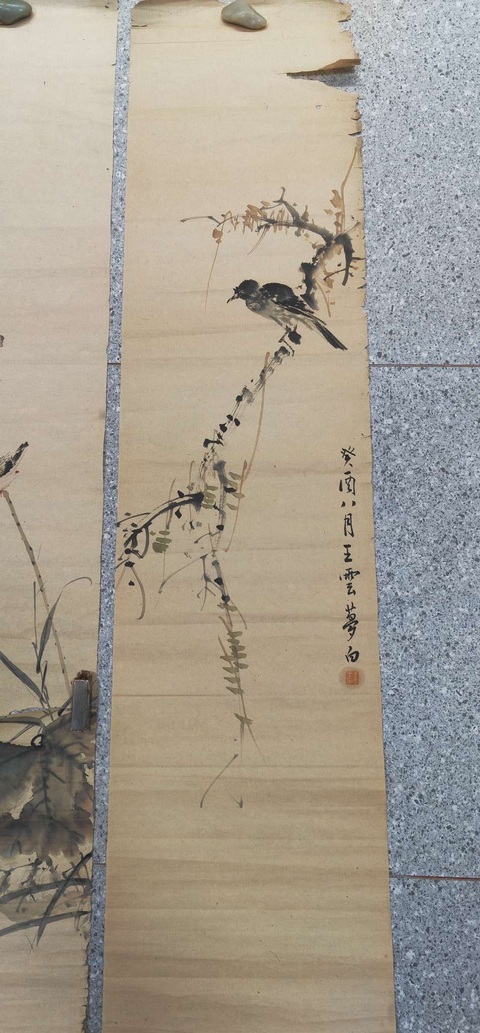 癸酉八月王雲夢白